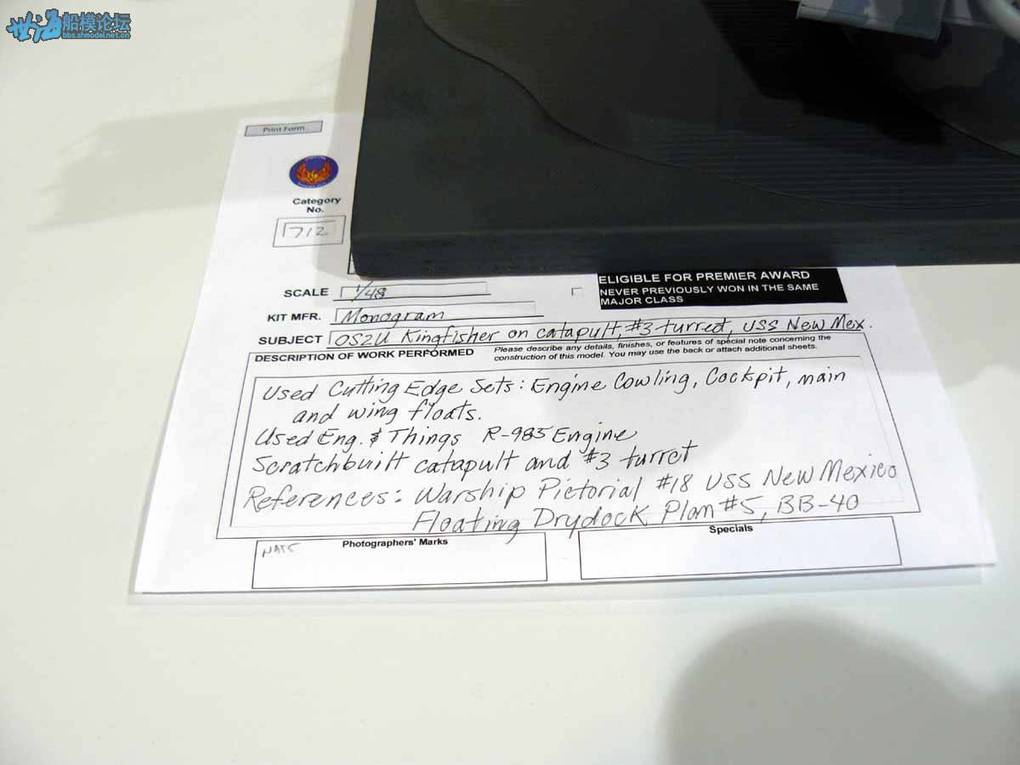 世海船模论坛
bbs.shmodel.net.cn
Print Form
Category
No.
712
SCALE 1/48
ELIGIBLE FOR PREMIER AWARD
NEVER PREVIOUSLY WON IN THE SAME
MAJOR CLASS
KIT MFR. Monogram
SUBJECT OS2U Kingfisher on catapult #3 turred, USS New Mex.
DESCRIPTION OF WORK PERFORMED
Please describe any details, finishes, or features of special note concerning the
construction of this model. You may use the back or attach additional sheets.
Used Cutting Edge Sets: Engine Cowling, Cockpit, main
and wing floats.
Used Eng. & Things R-985 Engine
Scratchbuilt catapult and #3 turret
References: Warship Pictorial #18 USS New Mexico
Floating Drydock Plan #5, BB-40
Photographers' Marks
NATS
Specials